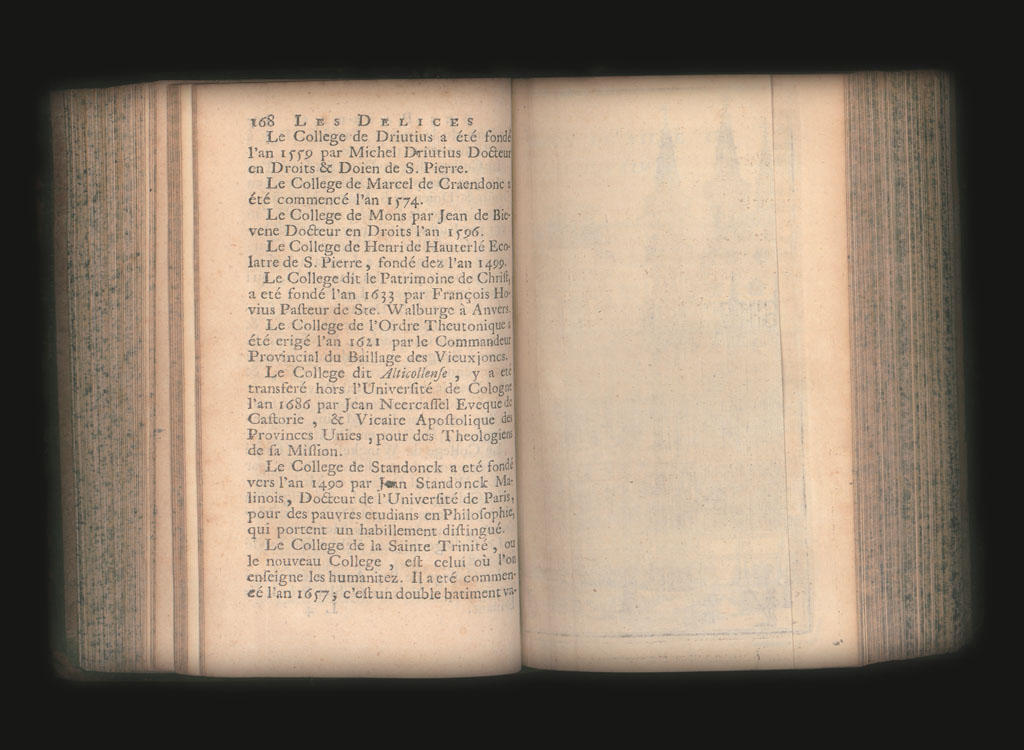 168 LES DELICES
Le College de Driutius a été fondé
l'an 1559 par Michel Driutius Docteur
en Droits & Doien de S. Pierre.
Le College de Marcel de Craendonc a
été commencé l'an 1574.
Le College de Mons par Jean de Bie-
vene Docteur en Droits l'an 1596.
Le College de Henri de Hauterlé Eco-
latre de S. Pierre, fondé dez l'an 1499.
Le College dit le Patrimoine de Chriſt,
a eté fondé l'an 1633 par François Ho-
vius Paſteur de Ste. Walburge à Anvers.
Le College de l'Ordre Theutonique a
été erigé l'an 1621 par le Commandeur
Provincial du Baillage des Vieuxjoncs.
Le College dit Alticollenſe, y a eté
transferé hors l'Univerſité de Cologne
l'an 1686 par Jean Neercaſſel Eveque de
Caſtorie, & Vicaire Apoſtolique des
Provinces Unies, pour des Theologiens
de ſa Miſſion.
Le College de Standonck a eté fondé
vers l'an 1490 par Jean Standonck Ma-
linois, Docteur de l'Univerſité de Paris,
pour des pauvres etudians en Philoſophie,
qui portent un habillement diſtingué.
Le College de la Sainte Trinité, ou
le nouveau College, eſt celui où l'on
enſeigne les humanitez. Il a eté commen-
cé l'an 1657; c'eſt un double batiment va-